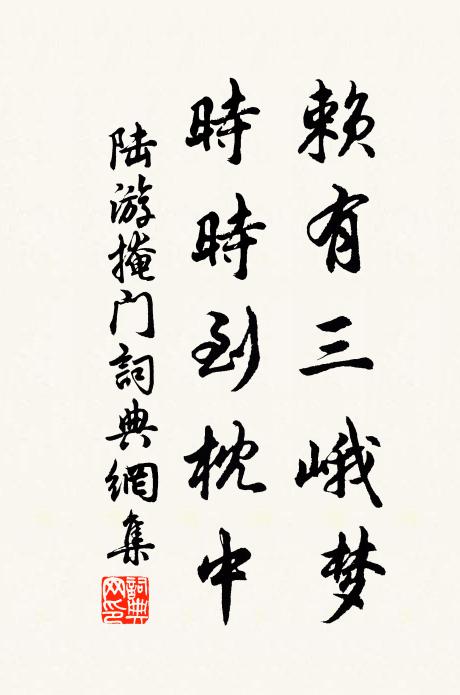 赖有三峨梦
時時到枕中
陆游掩门詞典網集
詞典网印